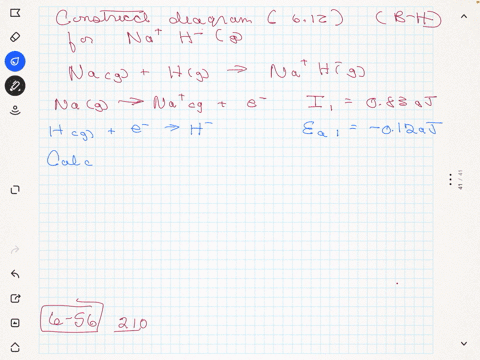 Construct diagram (6.12) (B-H)
for Na⁺ H⁻ (g)
Na(g) + H(g) → Na⁺H⁻(g)
Na(g) → Na⁺cg + e⁻ I₁ = 0.83 aJ
H(g) + e⁻ → H⁻ Ea1 = -0.12aJ
Calc
41 / 41
6-56 210